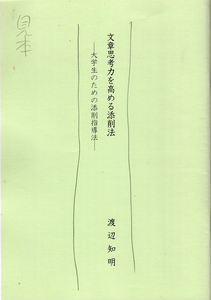 見本
文章思考力を高める添削法
―大学生のための添削指導法―
渡辺知明